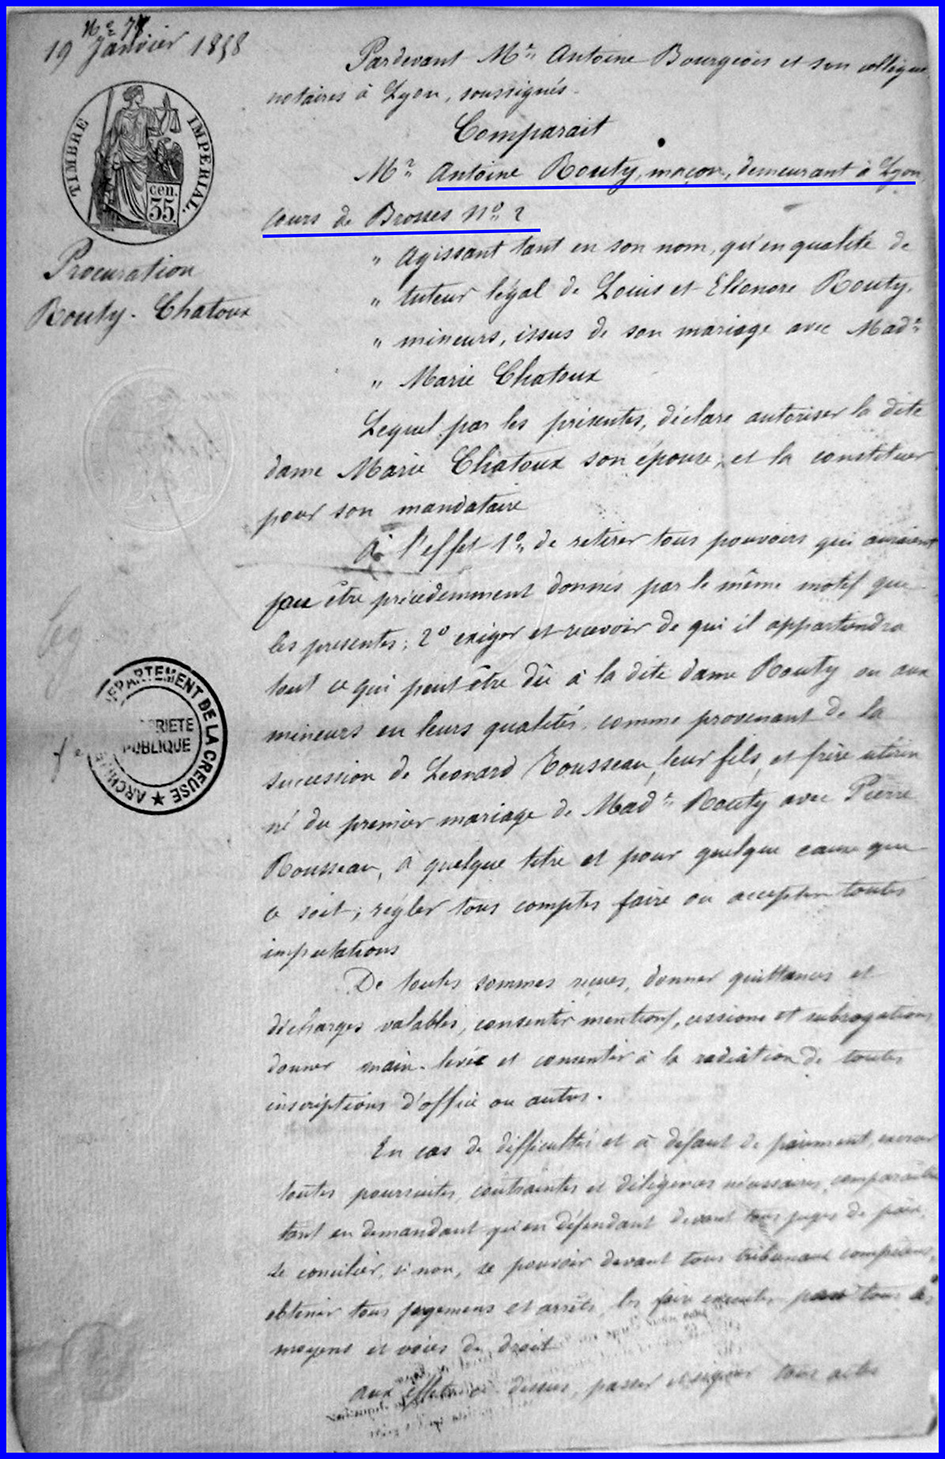 19 Janvier 1858
TIMBRE IMPERIAL
cen.
35
Procuration
Bouty-Chatoux
DEPARTEMENT DE LA CREUSE
PUBLIQUE
Pardevant Mre Antoine Bourgeois et son collègue
notaires à Lyon, soussignés.
Comparait
Mr Antoine Bouty, maçon, demeurant à Lyon,
cours de Brosses No 2
" agissant tant en son nom, qu'en qualité de
" tuteur légal de Louis et Eléonore Bouty,
" mineurs, issus de son mariage avec Made
" Marie Chatoux
Lequel par les présentes, déclare autoriser la dite
dame Marie Chatoux son épouse, et la constituer
pour son mandataire
à l'effet 1o de retirer tous pouvoirs qui auraient
pu être précédemment donnés par le même motif que
les présentes; 2o exiger et recevoir de qui il appartiendra
tout ce qui peut être dû à la dite dame Bouty ou aux
mineurs en leurs qualités, comme provenant de la
succession de Léonard Rousseau, leur fils, et frère utérin
né du premier mariage de Made Bouty avec Pierre
Rousseau, à quelque titre et pour quelque cause que
ce soit; régler tous comptes faire ou accepter toutes
imputations
De toutes sommes reçues, donner quittances et
décharges valables, consentir mentions, cessions et subrogations
donner main-levée et consentir à la radiation de toutes
inscriptions d'office ou autres.
En cas de difficultés et à défaut de paiement, exercer
toutes poursuites, contraintes et diligences nécessaires, comparaître
tant en demandant qu'en défendant devant tous juges de paix,
se concilier, si non, se pourvoir devant tous tribunaux compétens,
obtenir tous jugemens et arrêts, les faire exécuter par tous les
moyens et voies de droit
aux effets ci dessus, passer et signer tous actes